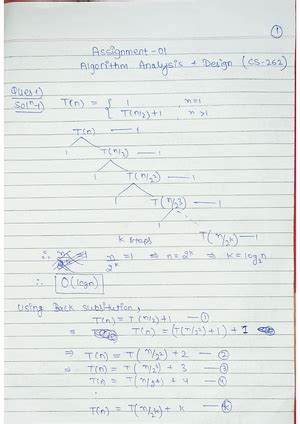 1
Assignment-01
Algorithm Analysis + Design (CS-262)
Ques1)
Solⁿ-1) T(n) = { 1 , n=1
T(n/2)+1 , n>1
T(n) — 1
1 T(n/2) — 1
1 T(n/2²) — 1
1 T(n/2³) — 1
1
k steps T(n/2ᵏ) — 1
∵ n/2ᵏ = 1 ⇒ n = 2ᵏ ⇒ k = log₂n
∴ O(logn)
Using Back substitution,
T(n) = T(n/2)+1 — ①
⇒ T(n) = (T(n/2²)+1) + 1
⇒ T(n) = T(n/2²) + 2 — ②
⇒ T(n) = T(n/2³) + 3 — ③
T(n) = T(n/2⁴) + 4 — ④
⋮
T(n) = T(n/2ᵏ) + k — ⓚ